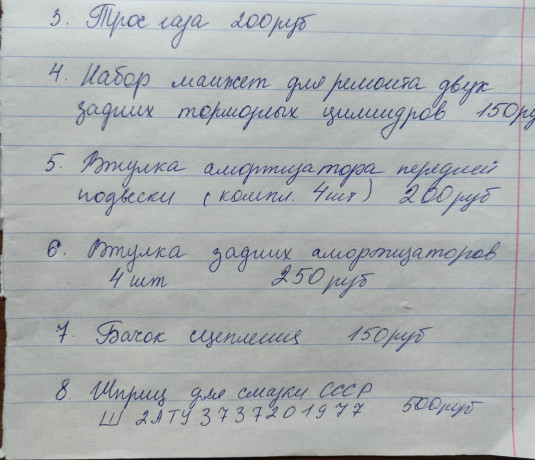 3. Трос газа 200руб
4. Набор манжет для ремонта двух
задних тормозных цилиндров 150ру
5. Втулка амортизатора передней
подвески (компл. 4шт) 200руб
6. Втулка задних амортизаторов
4шт 250руб
7. Бачок сцепления 150руб
8. Шприц для смазки СССР
Ш 2АТУ3737201977 500руб